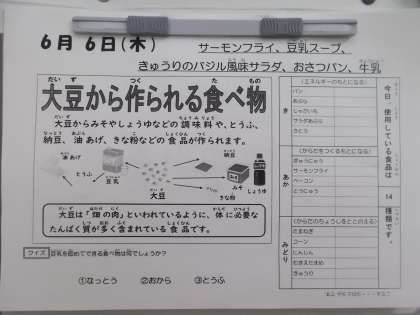 6月6日(木)
サーモンフライ、豆乳スープ、
きゅうりのバジル風味サラダ、おさつパン、牛乳
大豆から作られる食べ物
大豆からみそやしょうゆなどの調味料や、とうふ、
納豆、油あげ、きな粉などの食品が作られます。
油あげ
とうふ
豆乳
大豆
納豆
みそ
しょうゆ
きな粉
大豆は「畑の肉」といわれているように、体に必要な
たんぱく質が多く含まれている食品です。
クイズ 豆乳を固めてできる食べ物は何でしょうか?
①なっとう ②おから ③とうふ
今日、使用している食品は
14
種類です。
き
(エネルギーのもとになる)
パン
あぶら
じゃがいも
サラダあぶら
さとう
あか
(からだをつくるもとになる)
ぎゅうにゅう
サーモンフライ
ベーコン
とうにゅう
みどり
(からだのちょうしをととのえる)
たまねぎ
コーン
にんじん
きゅうり